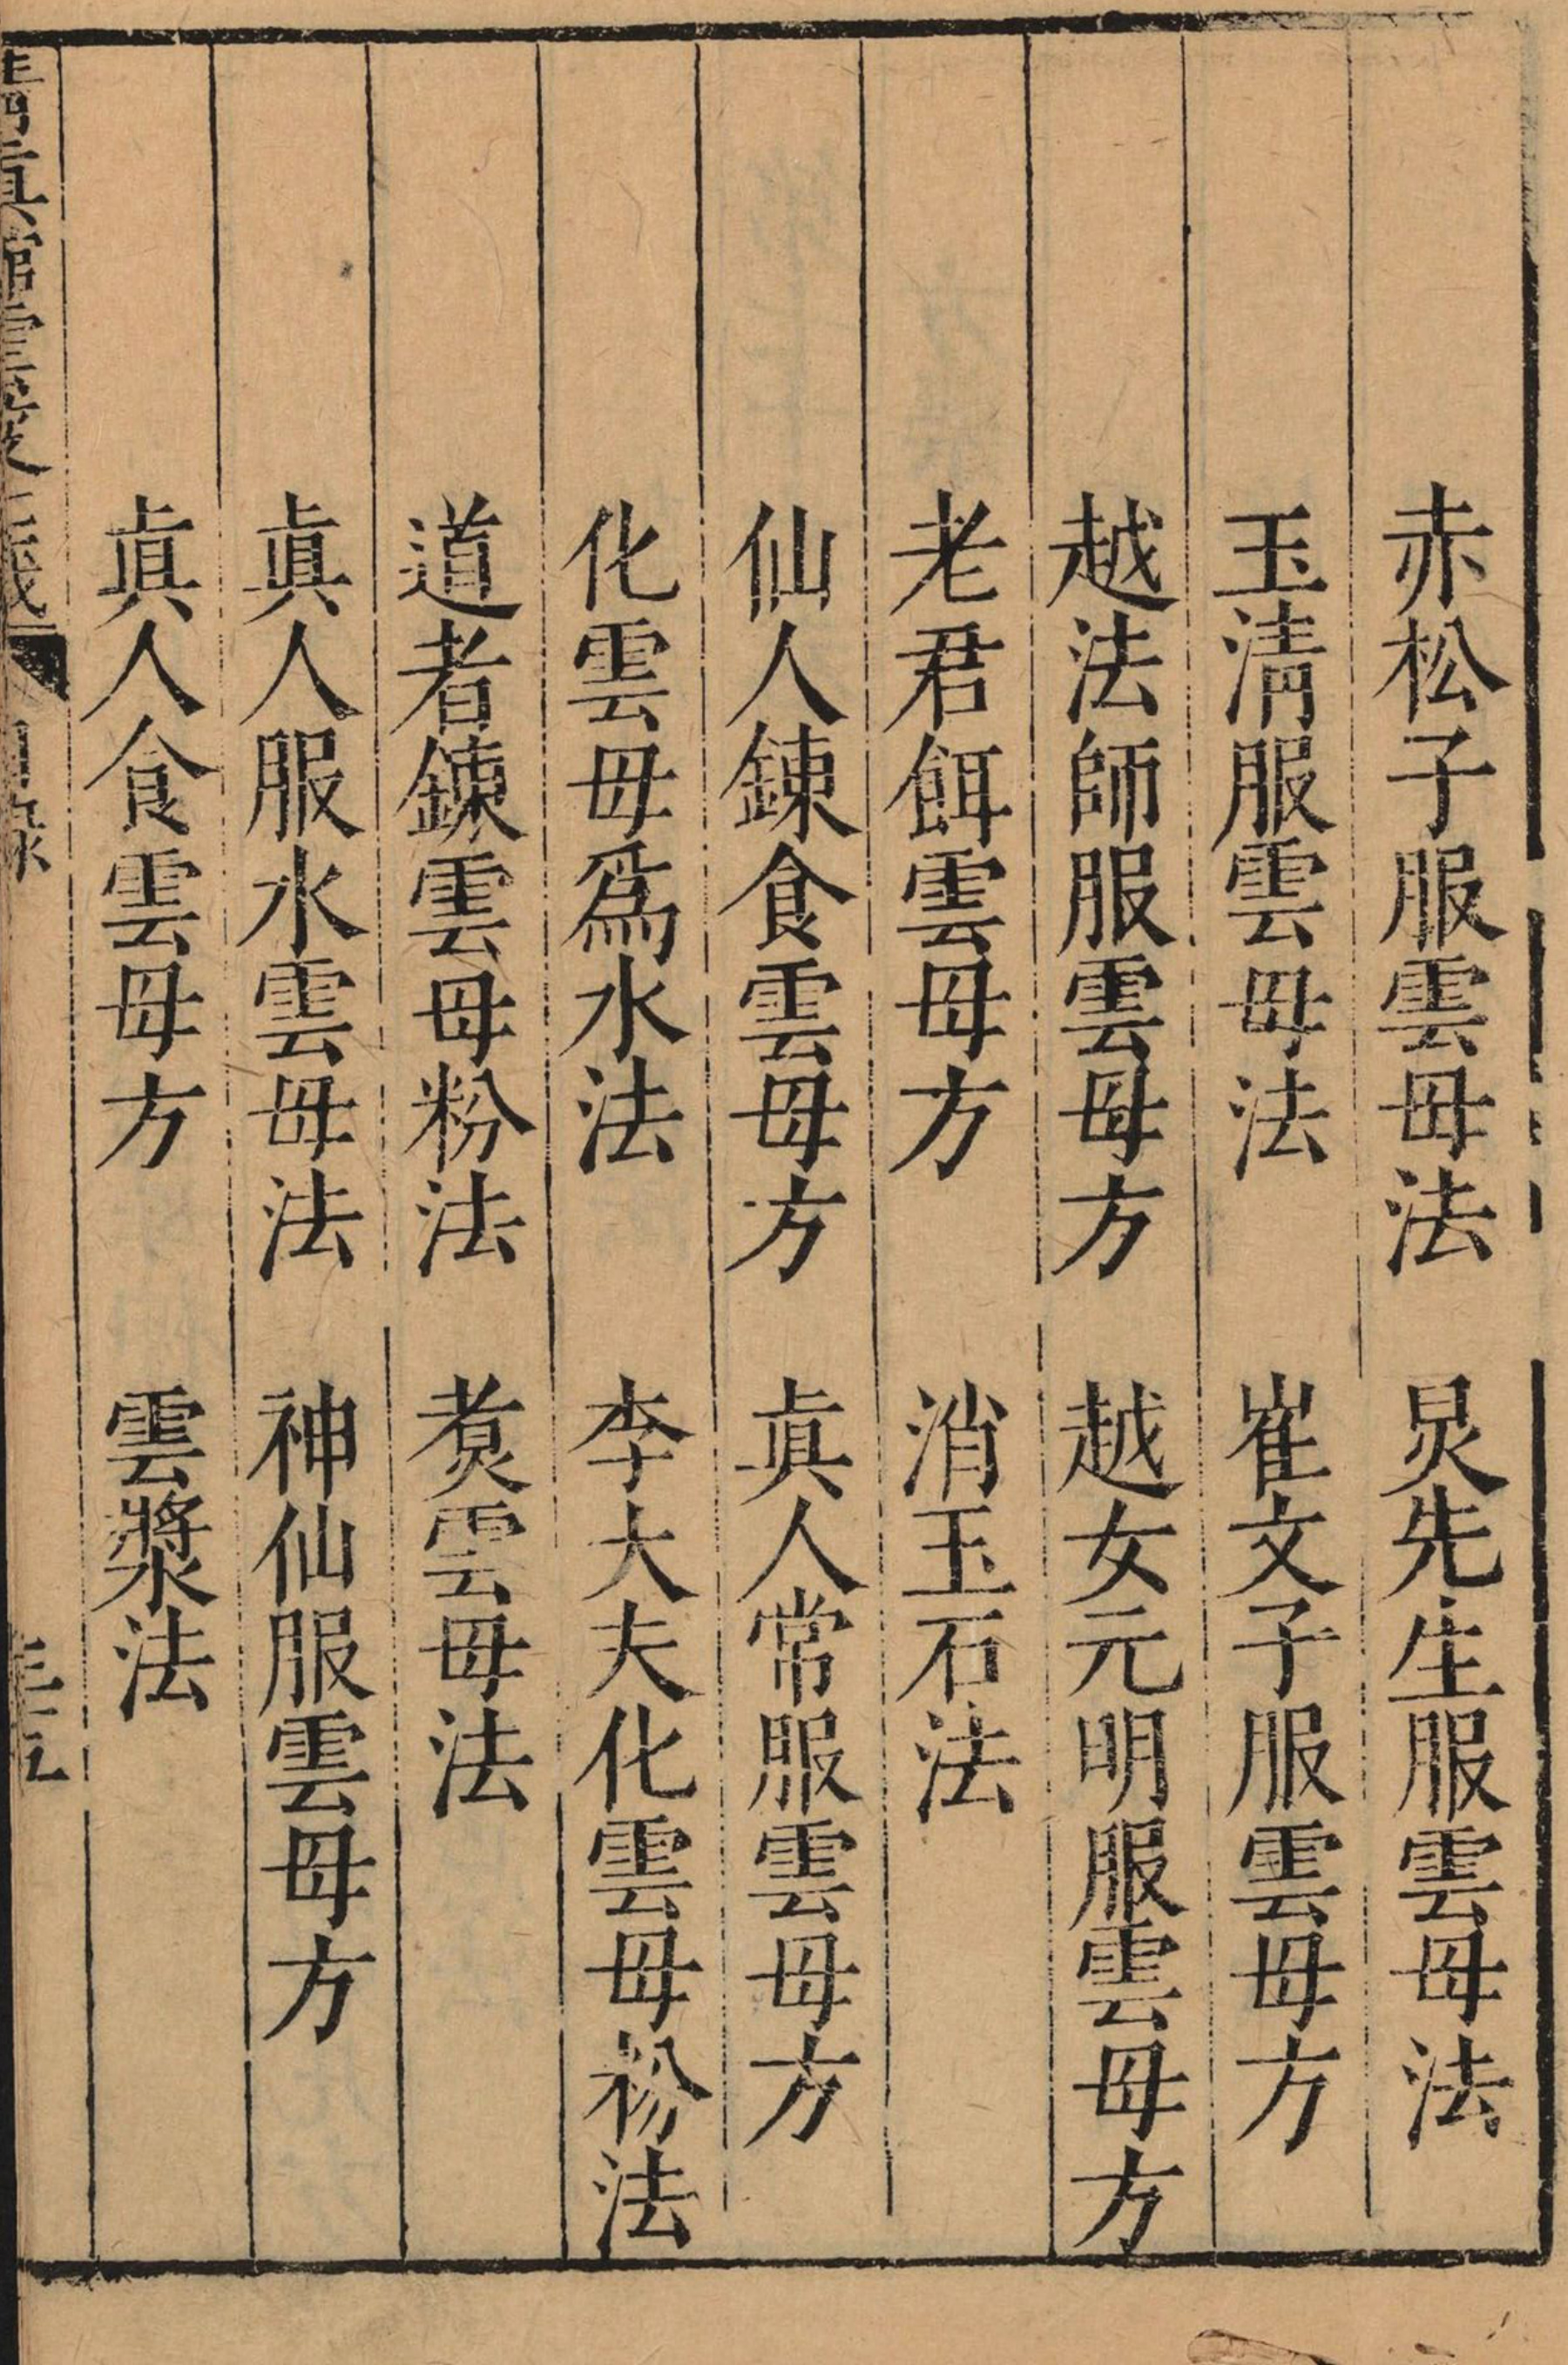 赤松子服雲母法　炅先生服雲母法
玉清服雲母法　崔文子服雲母方
越法師服雲母方　越女元明服雲母方
老君餌雲母方　消玉石法
仙人鍊食雲母方　眞人常服雲母方
化雲母爲水法　李大夫化雲母粉法
道者鍊雲母粉法　煑雲母法
眞人服水雲母法　神仙服雲母方
眞人食雲母方　雲漿法
目錄